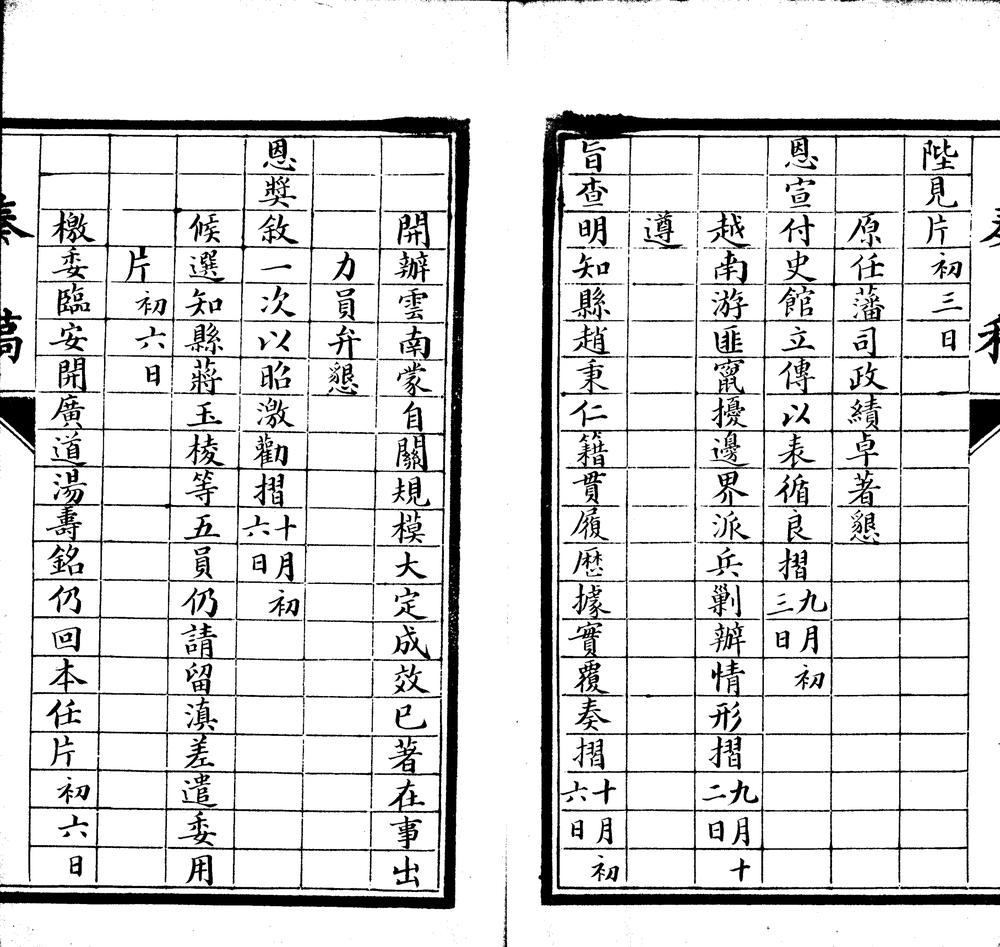 陛見片初三日
原任藩司政績卓著懇
恩宣付史館立傳以表循良摺九月初三日
越南游匪竄擾邊界派兵剿辦情形摺九月十二日
遵
旨查明知縣趙秉仁籍貫履歷據實覆奏摺十月初六日
開辦雲南蒙自關規模大定成效已著在事出
力員弁懇
恩獎敘一次以昭激勸摺十月初六日
候選知縣蔣玉棱等五員仍請留滇差遣委用
片初六日
檄委臨安開廣道湯壽銘仍回本任片初六日